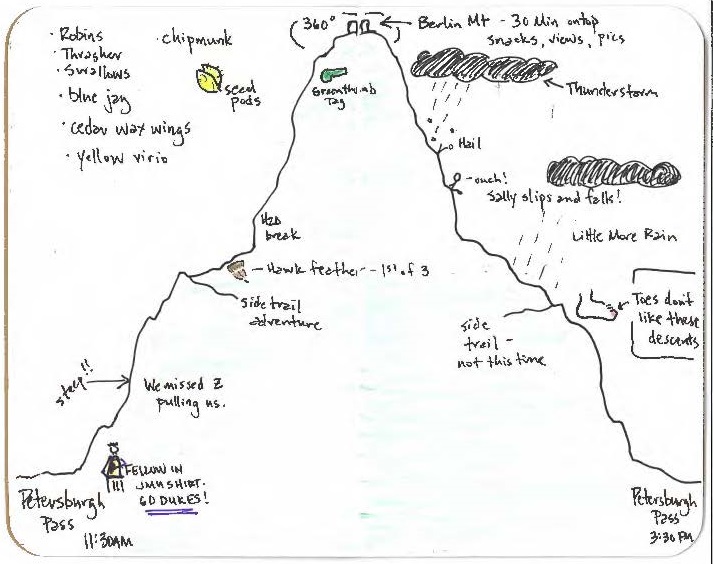 · Robins
· Thrasher
· Swallows
· blue jay
· cedar wax wings
· yellow virio
· chipmunk
seed
pods
360°
Berlin Mt - 30 Min ontop
snacks, views, pics
Greenthumb
Tag
Thunderstorm
Hail
-ouch!
Sally slips and falls!
Little More Rain
H2O
break
Hawk feather - 1st of 3
side trail
adventure
side
trail -
not this time
Toes don't
like these
descents
steep!!
We missed Z
pulling us.
FELLOW IN
JMU SHIRT.
GO DUKES!
Petersburgh
Pass
11:30AM
Petersburgh
Pass
3:30 PM